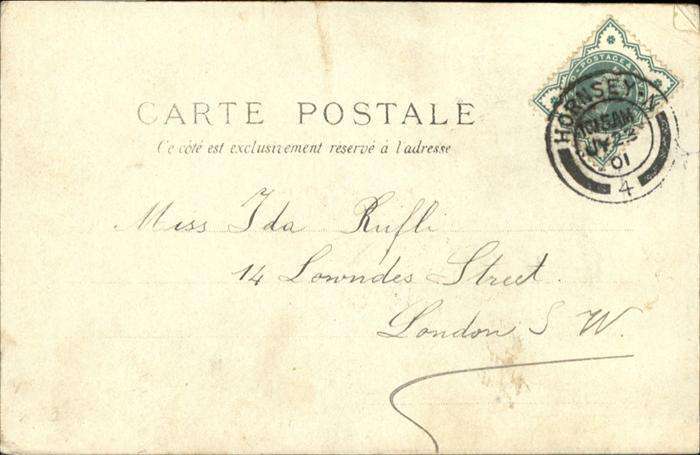 POSTAGE &
HORNSEY.N
JY 23
01
4
CARTE POSTALE
Ce côté est exclusivement reservé à l'adresse
Miss Ida Rufli
14 Lowndes Street.
London S W.